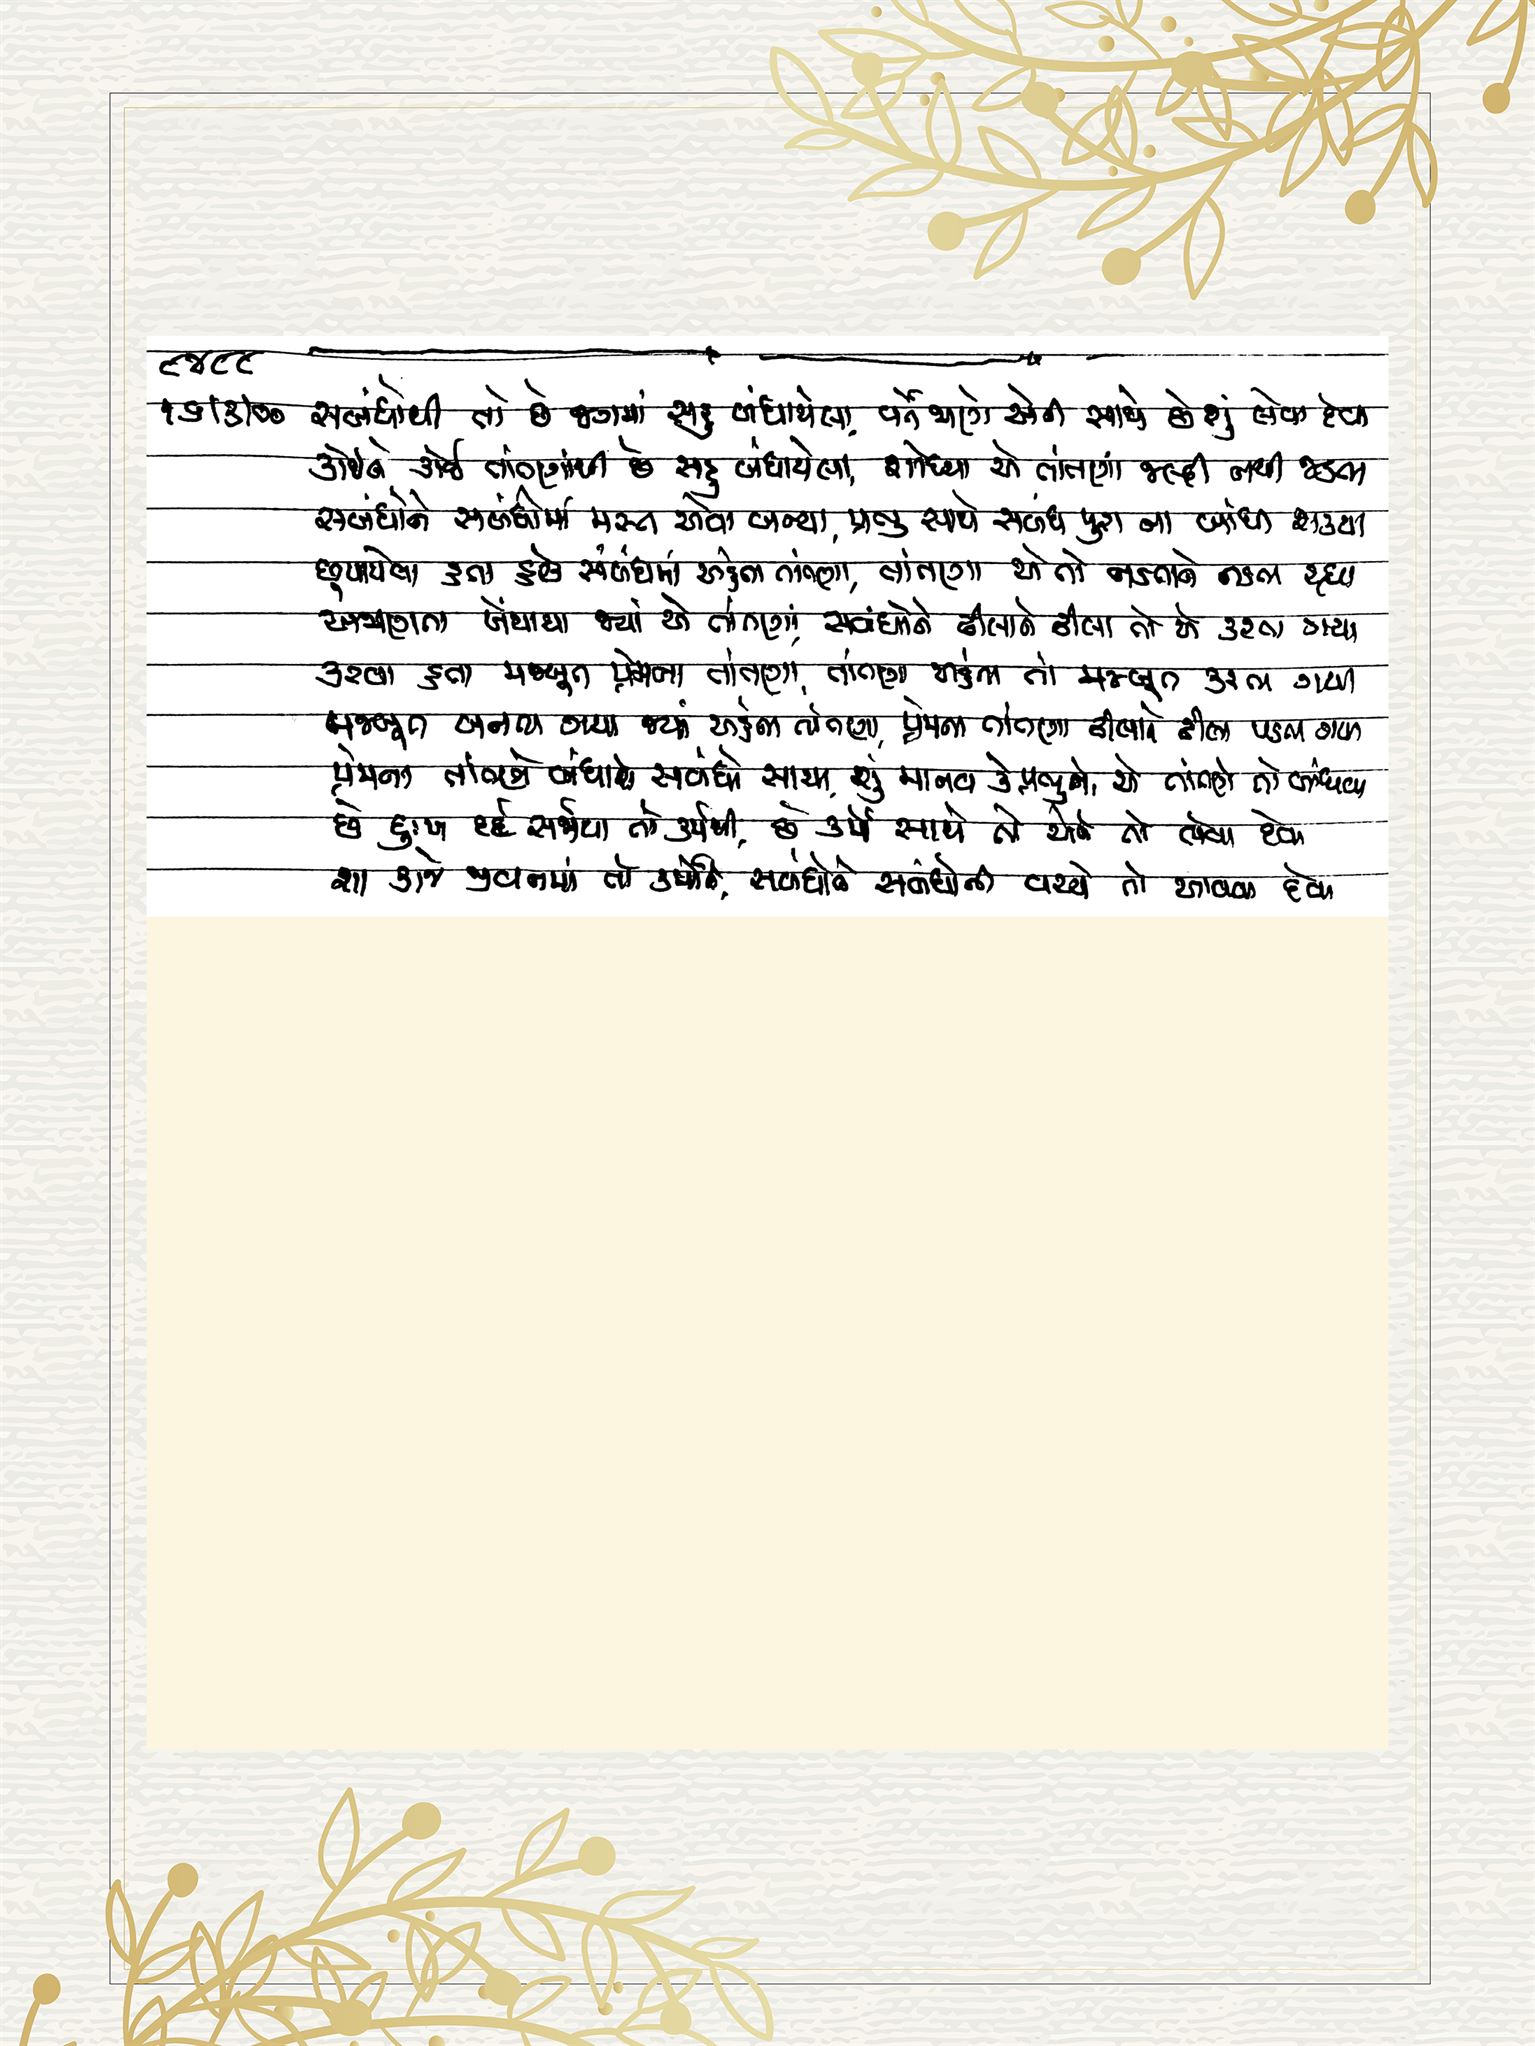 ૯૪૯૯
૧૬/૩/૦૦ સબંધોથી તો છે જગમાં સહુ બંધાયેલા, વર્તે જાણે એની સાથે છે શું લેવા દેવા
કોઈને કોઈ તાંતણાંથી છે સહુ બંધાયેલા, શોધ્યા એ તાંતણાં જલ્દી નથી જડતા
સબંધોને સબંધોમાં મસ્ત એવા બન્યા, પ્રભુ સાથે સબંધ પુરા ના બાંધી શક્યા
છુપાયેલા હતા હરેક સંબંધમાં અહંના તાંતણા, તાંતણા એ તો નડતાને નડતા રહ્યા
અજાણતા ખેંચાયા જ્યાં એ તાંતણાં, સબંધોને ઢીલાને ઢીલા તો એ કરતા ગયા
કરવા હતા મજબૂત પ્રેમના તાંતણા, તાંતણા અહંના તો મજબૂત કરતા ગયા
મજબૂત બનતા ગયા જ્યાં અહંના તાંતણા, પ્રેમના તાંતણા ઢીલાને ઢીલા પડતા ગયા
પ્રેમના તાંતણે બંધાશે સબંધો સાચા, શું માનવ કે પ્રભુને, એ તાંતણે તો બાંધવા
છે દુઃખ દર્દ સર્જાયા તો કર્મથી, છે કર્મ સાથે તો એને તો લેવા દેવા
શા કાજે જીવનમાં તો કર્મોને, સબંધોને સબંધોની વચ્ચે તો આવવા દેવા